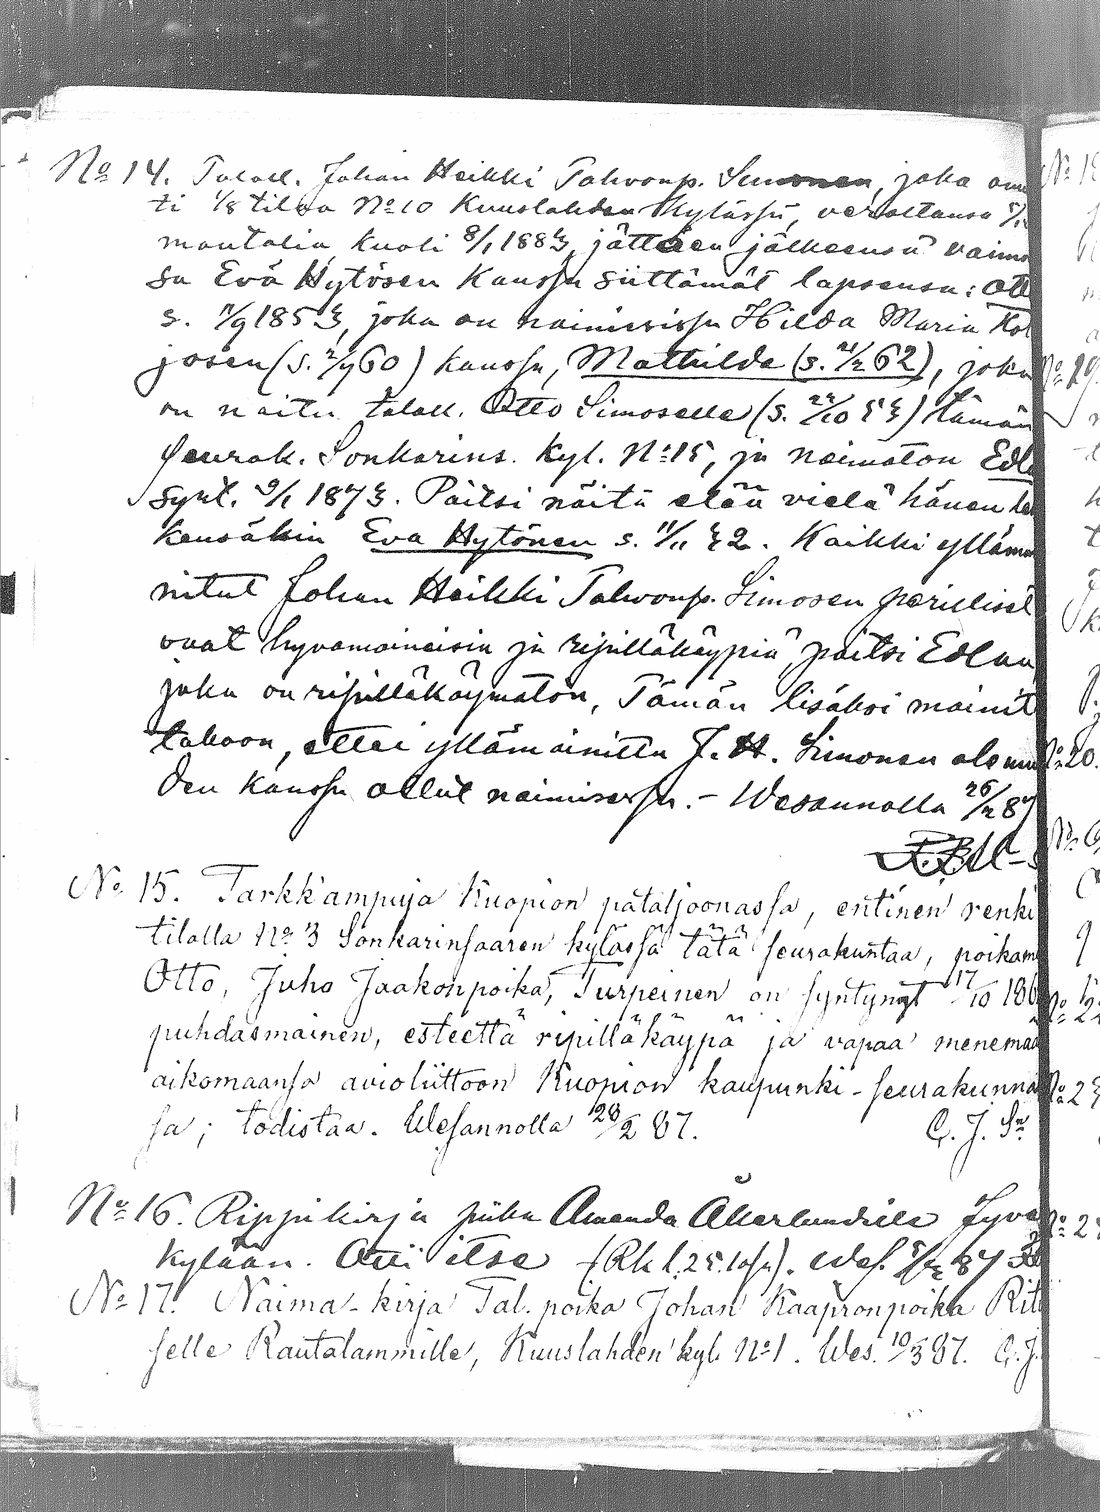 No 14. Talall. Johan Heikki Tahvonp. Simonen, joka omis
ti 1/8 tilaa No 10 Kuuslahden kylässä, verottansa
mantalia, kuoli 8/1 1883, jättäen jälkeensä vaimo
sa Eva Hytösen kanssa siittämät lapsensa: Ott
s. 11/9 1853, joka on naimisissa Hilda Maria Kol
josen (s. 2/9 60) kanssa, Mathilda (s. 21/2 62), joka
on naitu talall. Otto Simoselle (s. 24/10 53) tämän
seurak. Sonkarins. kyl. No 15, ja naimaton Edla
synt. 9/1 1873. Paitsi näitä elää vielä hänen les
kensäkin Eva Hytönen s. 11/11 32. Kaikki ylläma
nitut Johan Heikki Tahvonp. Simosen perilliset
ovat hyvamaineisia ja ripilläkäypiä, paitsi Edlaa,
joka on ripilläkäymätön, Tämän lisäksi mainit
takoon, ettei yllämainittu J. H. Simonen ole muu
den kanssa ollut naimisissa. - Wesannolla 26/2 87
No 15. Tarkk'ampuja Kuopion pataljoonassa, entinen renki
tilalla No 3 Sonkarinsaaren kylässä tätä seurakuntaa, poikam
Otto, Juho Jaakonpoika, Turpeinen on syntynyt 17/10 186
puhdasmainen, esteettä ripilläkäypä ja vapaa menemää
aikomaansa avioliittoon Kuopion kaupunki-seurakunna
sa; todistaa. Wesannolla 28/2 87. C. J. Sn
No 16. Rippikirja piika Amanda Åkerlundille Jyvä
kylään. Otti itse (Rk l. 25. losa). Wes. 5/3 87
No 17. Naima-kirja Tal. poika Johan Kaapronpoika Rit
selle Rautalammille, Kuuslahden kyl. No 1. Wes. 10/3 87. C. J.